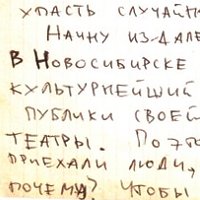 упасть случайн
Начну издале
в Новосибирске
культурнейший
публики своей
театры. Поэто
приехали люди,
почему? чтобы